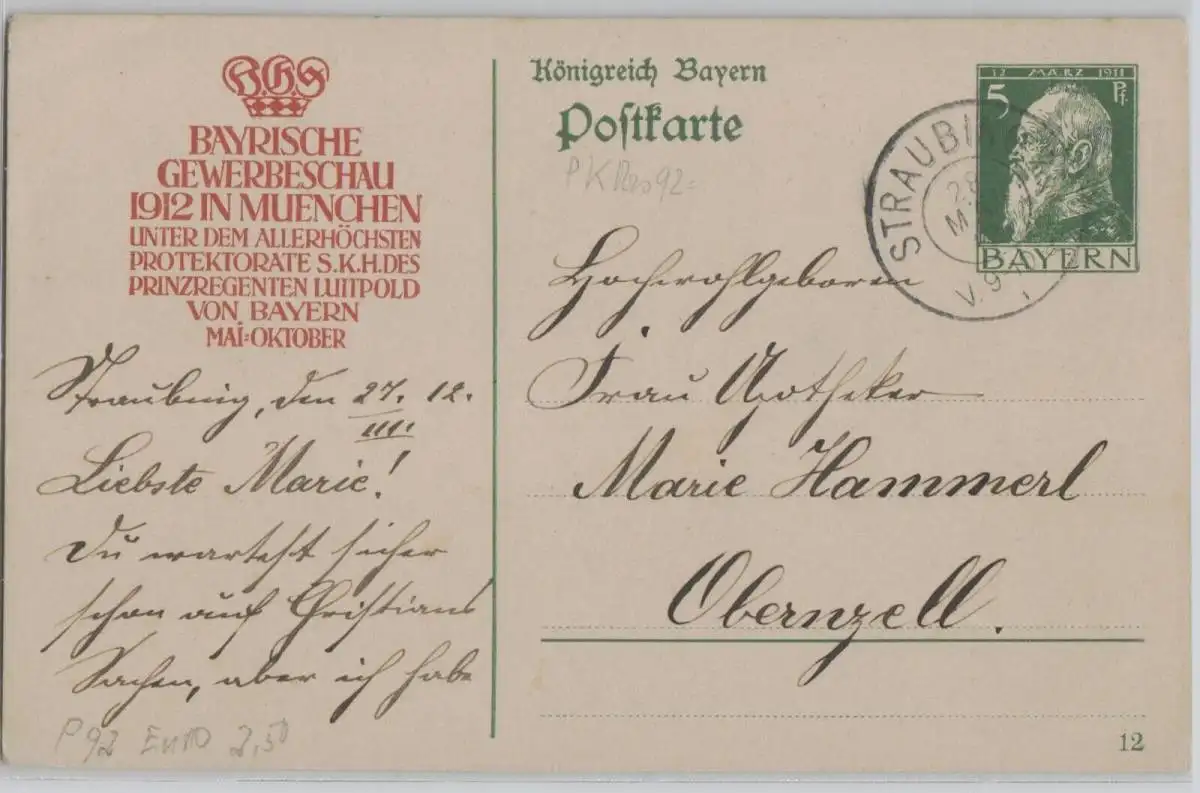 BGS
BAYRISCHE
GEWERBESCHAU
1912 IN MUENCHEN
UNTER DEM ALLERHÖCHSTEN
PROTEKTORATE S.K.H. DES
PRINZREGENTEN LUITPOLD
VON BAYERN
MAI=OKTOBER
Straubing, den 27. 12.
III.
Liebste Marie!
Du wartest sicher
schon auf Christians
Sachen, aber ich habe
P 92 Euro 2,50
Königreich Bayern
Postkarte
PK 92
12 MÄRZ 1911
5 Pf.
BAYERN
STRAUBING
28
V. 9
Hochwohlgeboren
Frau Apotheker
Marie Hammerl
Obernzell.
12